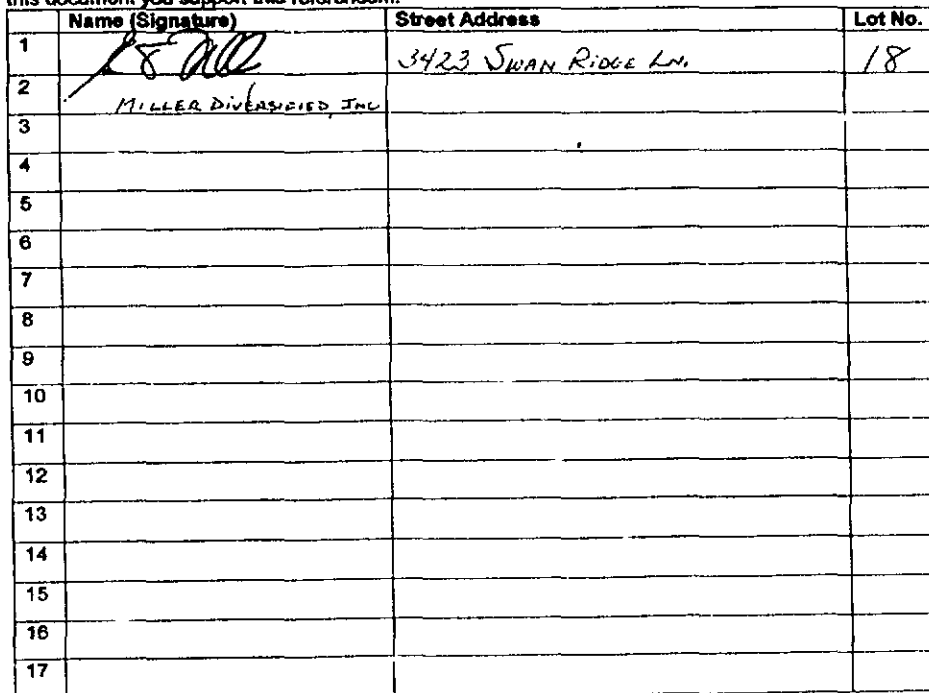 this document you support this referendum.
Name (Signature) Street Address Lot No.
1 3423 SWAN RIDGE LN. 18
2 MILLER DIVERSIFIED, INC
3
4
5
6
7
8
9
10
11
12
13
14
15
16
17